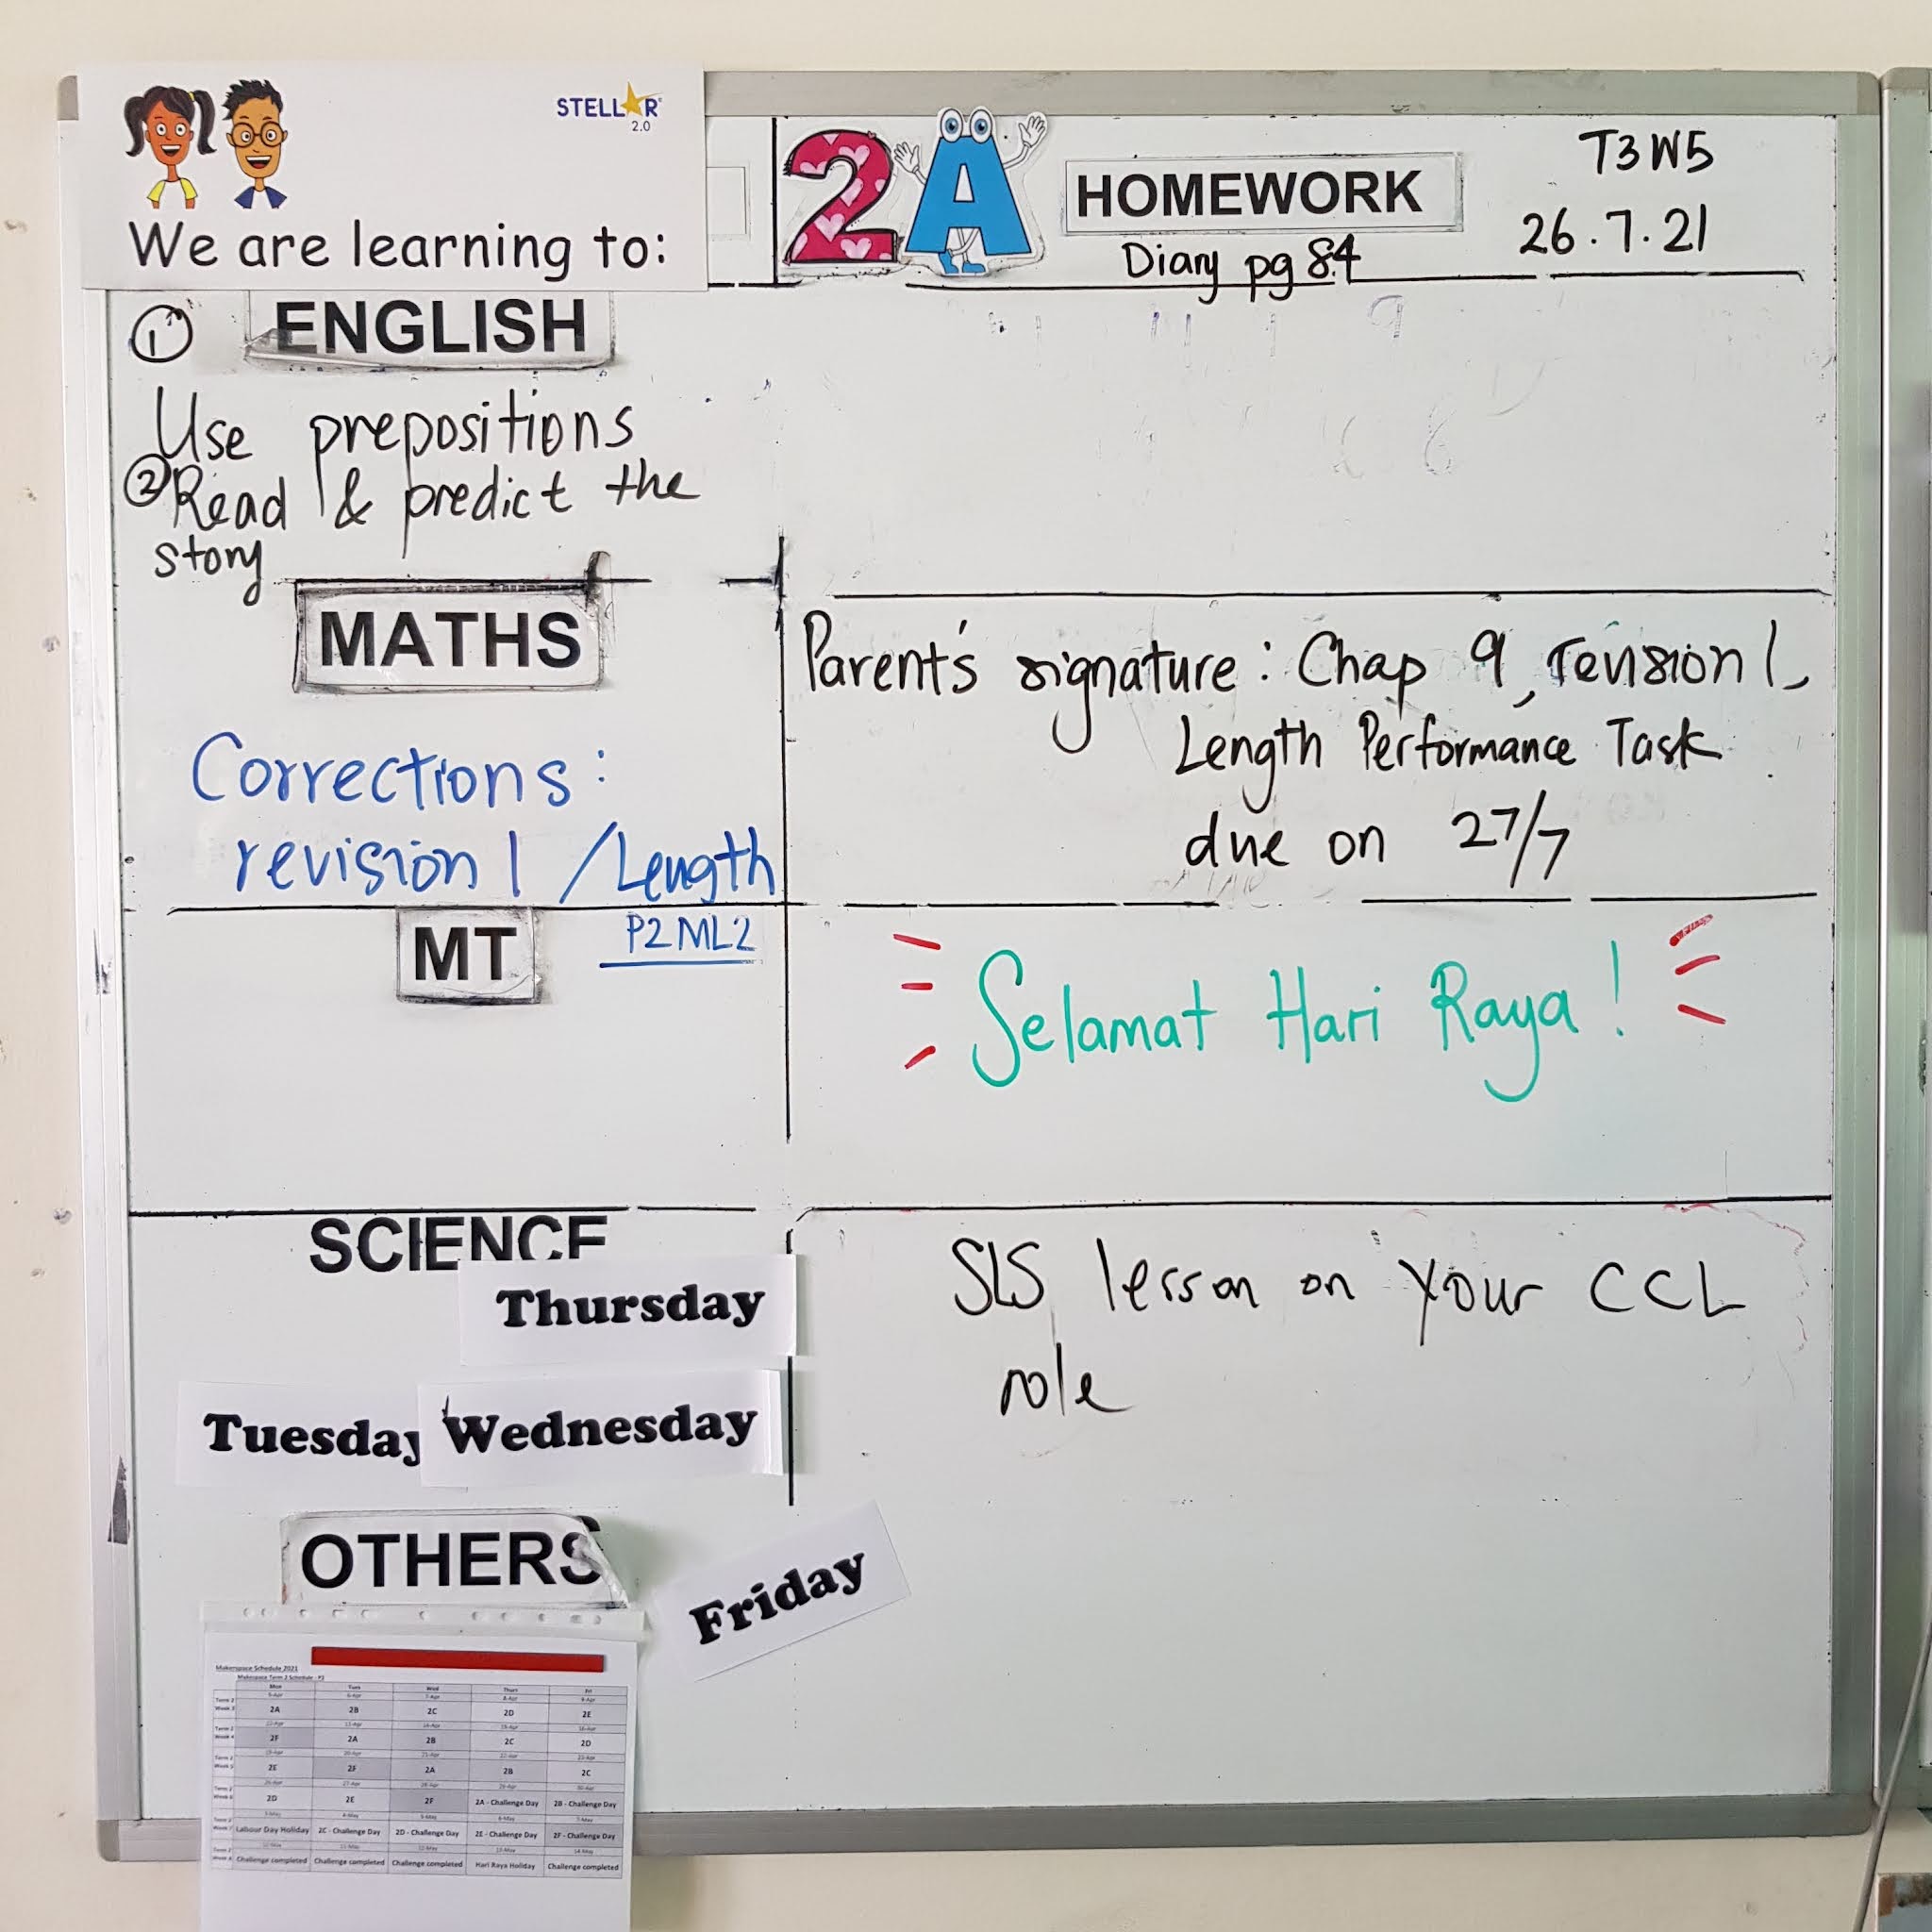 STELLAR
2.0
We are learning to:
2A
HOMEWORK
Diary pg 84
T3W5
26.7.21
① ENGLISH
Use prepositions
② Read & predict the
story
MATHS
Corrections:
revision 1 / Length
Parent's signature: Chap 9, revision 1,
Length Performance Task
due on 27/7
MT
P2 ML2
Selamat Hari Raya!
SCIENCE
Thursday
Tuesday Wednesday
SLS lesson on your CCL
role
OTHERS
Friday
Makerspace Schedule 2021
Makerspace Term 2 Schedule - P2
Mon Tues Wed Thurs Fri
5-Apr 6-Apr 7-Apr 8-Apr 9-Apr
2A 2B 2C 2D 2E
12-Apr 13-Apr 14-Apr 15-Apr 16-Apr
2F 2A 2B 2C 2D
19-Apr 20-Apr 21-Apr 22-Apr 23-Apr
2E 2F 2A 2B 2C
26-Apr 27-Apr 28-Apr 29-Apr 30-Apr
2D 2E 2F 2A - Challenge Day 2B - Challenge Day
3-May 4-May 5-May 6-May 7-May
Labour Day Holiday 2C - Challenge Day 2D - Challenge Day 2E - Challenge Day 2F - Challenge Day
10-May 11-May 12-May 13-May 14-May
Challenge completed Challenge completed Challenge completed Hari Raya Holiday Challenge completed